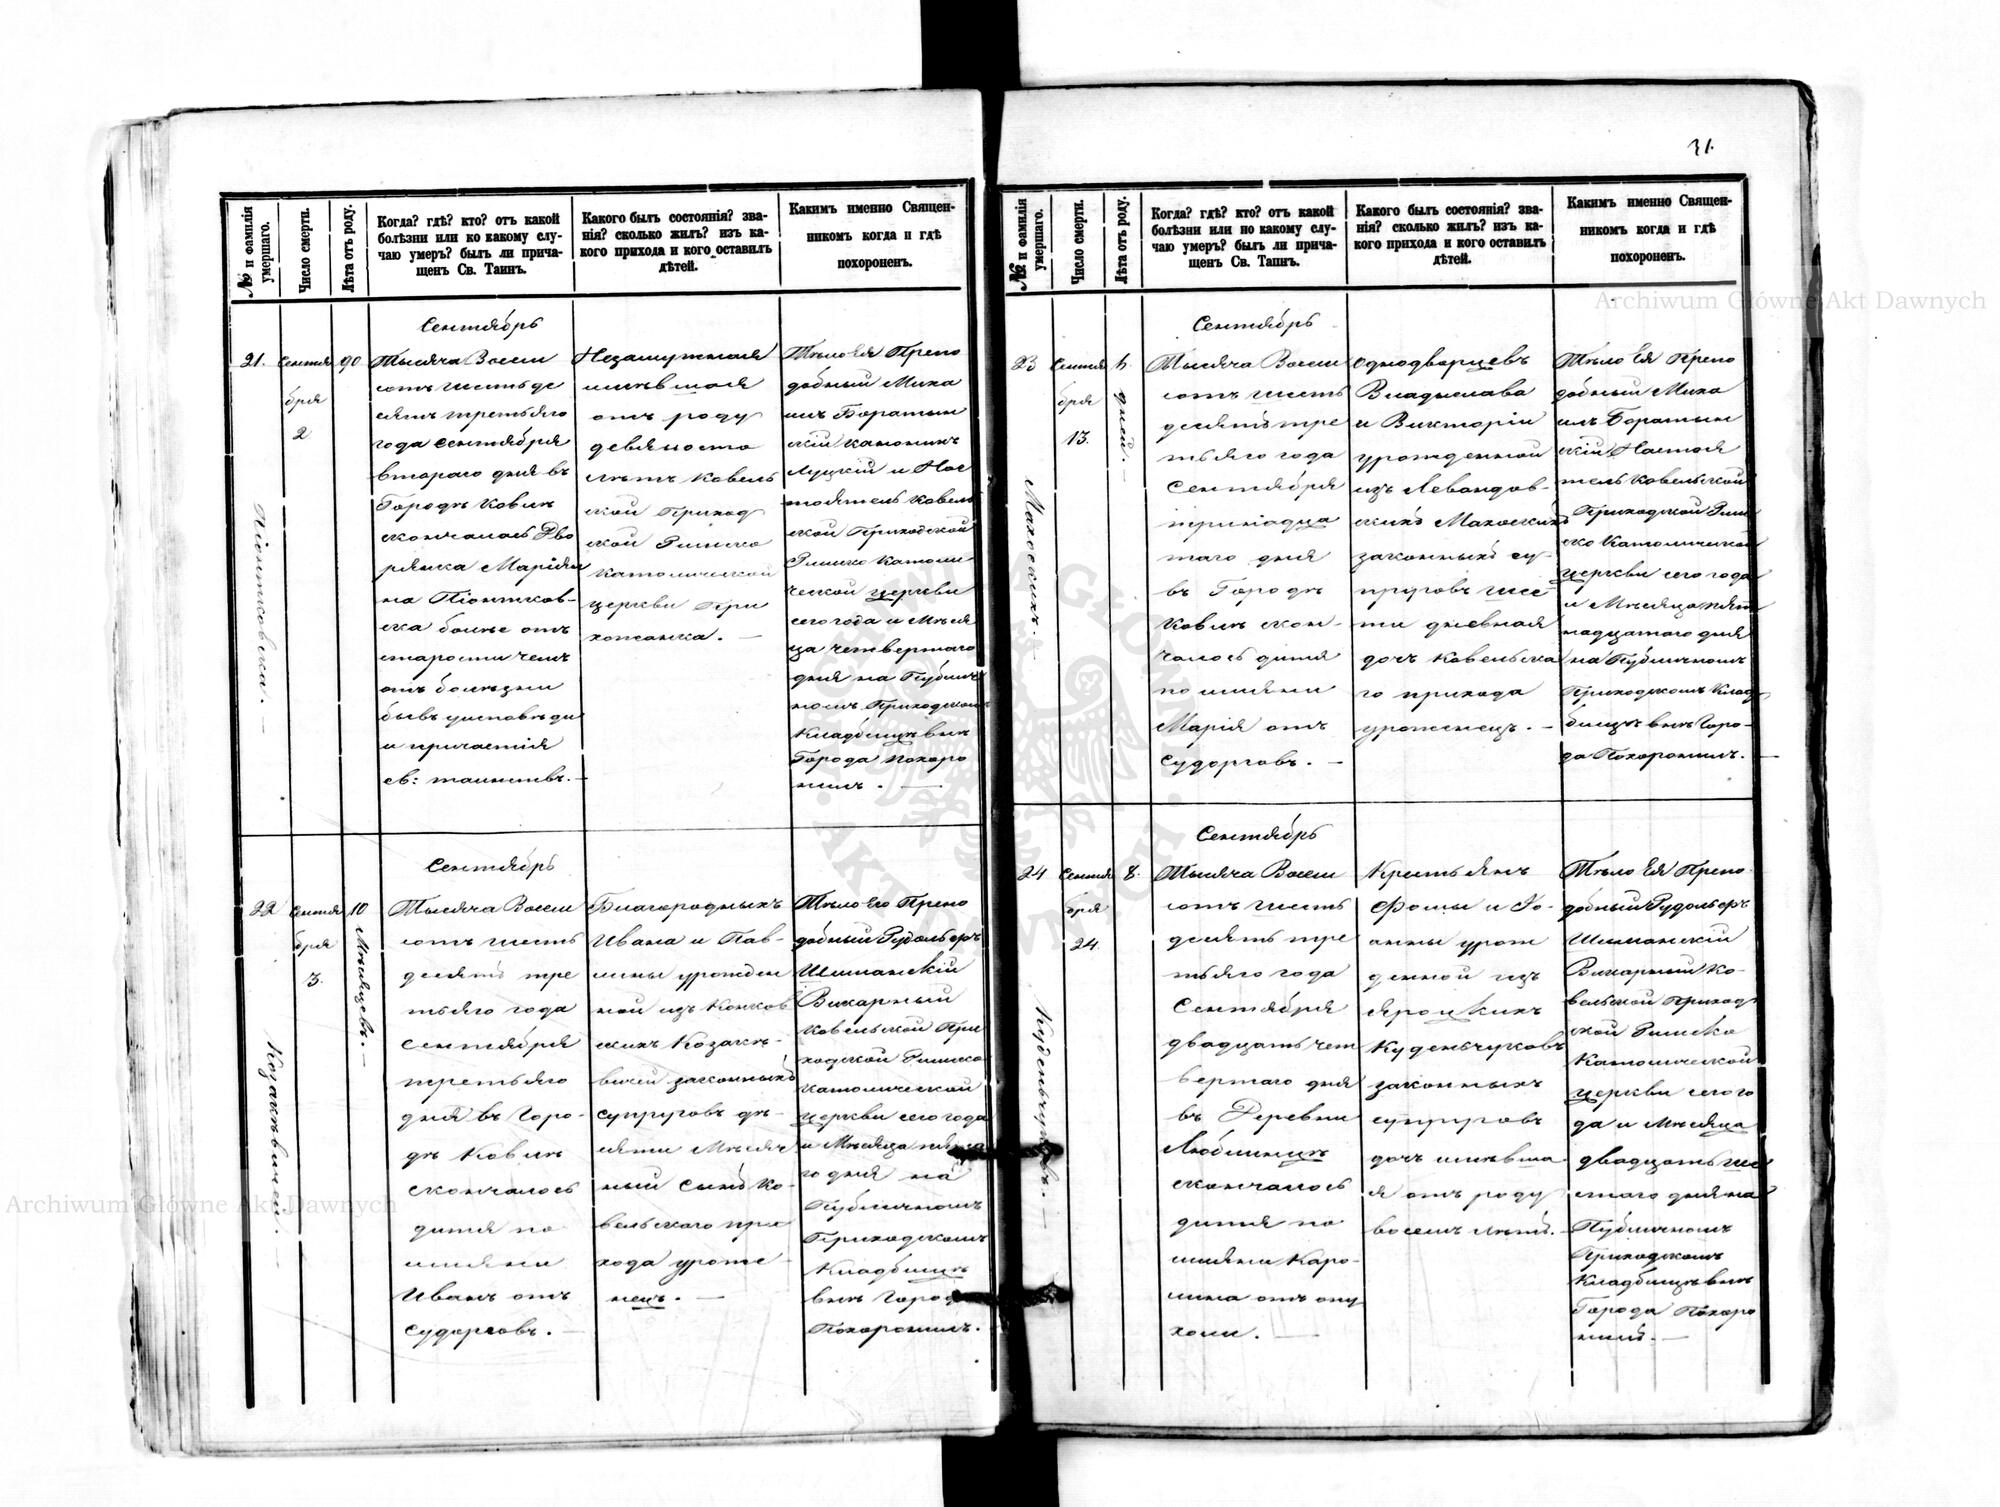 31.
№ и фамилія умершаго.
Число смерти.
Лѣта отъ роду.
Когда? гдѣ? кто? отъ какой
болѣзни или ко какому слу-
чаю умеръ? былъ ли прича-
щенъ Св. Таинъ.
Какого былъ состоянія? зва-
нія? сколько жилъ? изъ ка-
кого прихода и кого оставилъ
дѣтей.
Какимъ именно Священ-
никомъ когда и гдѣ
похороненъ.
21.
Піонтковска. —
Сентя
бря
2
90
Сентябрь
Тысяча Восем
сотъ шестьде
сятъ третьяго
года Сентября
втораго дня въ
Городѣ Ковлѣ
скончалась Дво
рянка Маріян
на Піонтков-
ска болѣе отъ
старости чемъ
отъ болѣзни
бывъ исповѣди
и причастія
св: таинствъ. —
Незамужная
имѣвшая
отъ роду
девяносто
лѣтъ Ковель
ской Приход
ской Римско
Католической
церкви При
хожанка. —
Тѣло Ея Препо
добный Миха
илъ Боратын
скій Каноникъ
Луцкій и Нас
тоятель Ковель
ской Приходской
Римско Католи
ческой церкви
сего года и Мѣся
ца четвертаго
дня на Публич
номъ Приходскомъ
Кладбищѣ внѣ
Города Похоро
нилъ. —
22
Козакѣвичей. —
Сентя
бря
3.
10
Мѣсяцевъ. —
Сентябрь
Тысяча Восем
сотъ шесть
десятъ тре
тьяго года
Сентября
третьяго
дня въ Горо
дѣ Ковлѣ
скончалось
дитя по
имяни
Иванъ отъ
судорговъ. —
Благородныхъ
Ивана и Пав-
лины урожден
ной изъ Конков
скихъ Козакѣ-
вичей законныхъ
супруговъ де-
сяти Мѣсяч
ный сынъ Ко-
вельского при
хода уроже-
нецъ. —
Тѣло Его Препо
добный Рудольфъ
Шиманскій
Викарный
Ковельской При
ходской Римско
Католической
церкви сего года
и Мѣсяца пята
го дня на
Публичномъ
Приходскомъ
Кладбищѣ
внѣ Города
Похоронилъ.
№ и фамилія умершаго.
Число смерти.
Лѣта отъ роду.
Когда? гдѣ? кто? отъ какой
болѣзни или по какому слу-
чаю умеръ? былъ ли прича-
щенъ Св. Таинъ.
Какого былъ состоянія? зва-
нія? сколько жилъ? изъ ка-
кого прихода и кого оставилъ
дѣтей.
Какимъ именно Священ-
никомъ когда и гдѣ
похороненъ.
23
Маховскихъ. —
Сентя
бря
13.
6.
дней. —
Сентябрь
Тысяча Восем
сотъ шесть
десятъ тре
тьяго года
Сентября
тринадца
таго дня
въ Городѣ
Ковлѣ скон-
чалось дитя
по имяни
Марія отъ
судорговъ. —
Однодворцевъ
Владыслава
и Викторіи
урожденной
изъ Левандов-
скихъ Маховскихъ
законныхъ су-
пруговъ шес
ти дневная
дочь Ковельска
го прихода
уроженецъ. —
Тѣло Ея Препо
добный Миха
илъ Боратын
скій Настоя
тель Ковельской
Приходской Рим
ско Католической
церкви сего года
и Мѣсяца пят
надцатого дня
на Публичномъ
Приходскомъ Клад-
бищѣ внѣ Горо-
да Похоронилъ. —
24
Куденьчуковъ. —
Сентя
бря
24.
8.
Сентябрь
Тысяча Восем
сотъ шесть
десятъ тре
тьяго года
Сентября
двадцать чет
вертаго дня
въ Деревни
Люблинцѣ
скончалось
дитя по
имяни Каро-
лина отъ опу
холи. —
Крестьянъ
Фомы и Іо-
анны урож
денной изъ
Яроцкихъ
Куденьчуковъ
законныхъ
супруговъ
дочь имѣвша
я отъ роду
восемъ лѣтъ. —
Тѣло Ея Препо
добный Рудольфъ
Шиманскій
Викарный Ко-
вельской Приход
ской Римско
Католической
церкви сего го
да и Мѣсяца
двадцать ше
стаго дня на
Публичномъ
Приходскомъ
Кладбищѣ внѣ
Города Похоро
нилъ. —
Archiwum Główne Akt Dawnych
Archiwum Główne Akt Dawnych